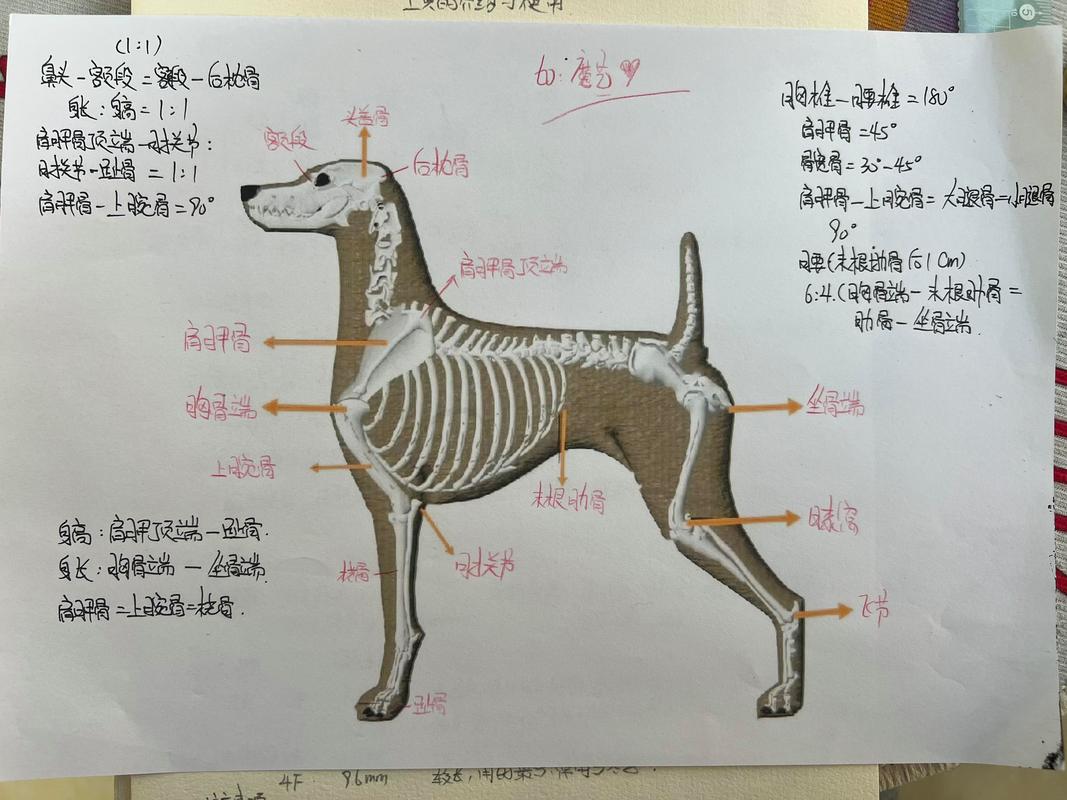 (1:1)
鼻头-额段=额段-后枕骨
身长:身高=1:1
肩胛骨顶端-肘关节:
肘关节-趾骨=1:1
肩胛骨-上腕骨=90°
头盖骨
额段
后枕骨
肩胛骨顶端
肩胛骨
胸骨端
上腕骨
末根肋骨
肘关节
桡骨
趾骨
坐骨端
膝窝
飞节
胸椎-腰椎=180°
肩胛骨=45°
髋骨=30°-45°
肩胛骨-上腕骨=大腿骨=小腿骨
90°
腰(末根肋骨后1cm)
6:4.(胸骨端-末根肋骨=
肋骨-坐骨端.
身高:肩胛顶端-趾骨.
身长:胸骨端-坐骨端.
肩胛骨=上腕骨=桡骨.
4F 96mm